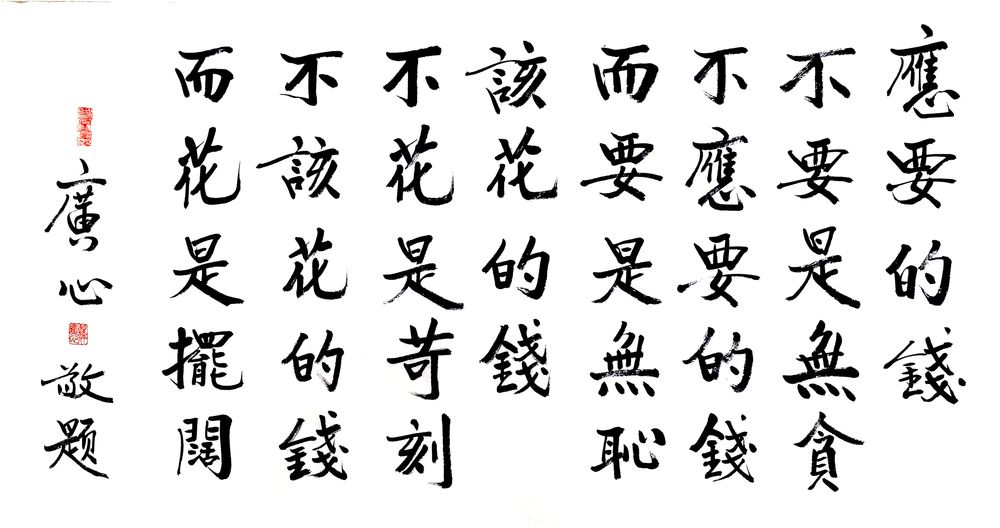 應要的錢
不要是無貪
不應要的錢
而要是無恥
該花的錢
不花是苛刻
不該花的錢
而花是擺闊
廣心敬题